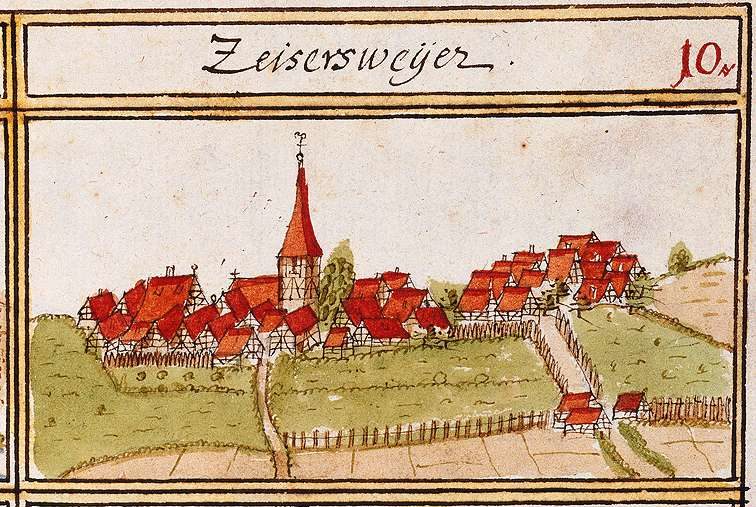 Zeisersweÿer.
10